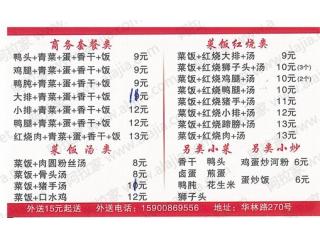 商务套餐类
鸭头+青菜+蛋+香干+饭 9元
鸡腿+青菜+蛋+香干+饭 9元
鸭肫+青菜+蛋+香干+饭 9元
大排+青菜+蛋+香干+饭 10元
小排+青菜+蛋+香干+饭
鸭腿+青菜+蛋+香干+饭 12元
红烧肉+青菜+蛋+香干+饭 13元
菜饭汤类
菜饭+肉圆粉丝汤 8元
菜饭+骨头汤 8元
菜饭+猪手汤 10元
菜饭+口水鸡 12元
菜饭红烧类
菜饭+红烧大排+汤 9元
菜饭+红烧狮子头+汤 10元(3个)
菜饭+红烧鸡腿+汤 10元
菜饭+红烧鸭肫+汤 10元(2个)
菜饭+红烧猪手+汤 11元
菜饭+红烧小排+汤 12元
菜饭+红烧蹄膀+汤 13元
菜饭+红烧鸭腿+汤 13元
另类小菜
香干 鸭头
卤蛋 煎蛋
鸭肫 花生米
狮子头
另类小炒
鸡蛋炒河粉 6元
蛋炒饭 6元
外送15元起送 电话：15900869556 地址：华林路270号